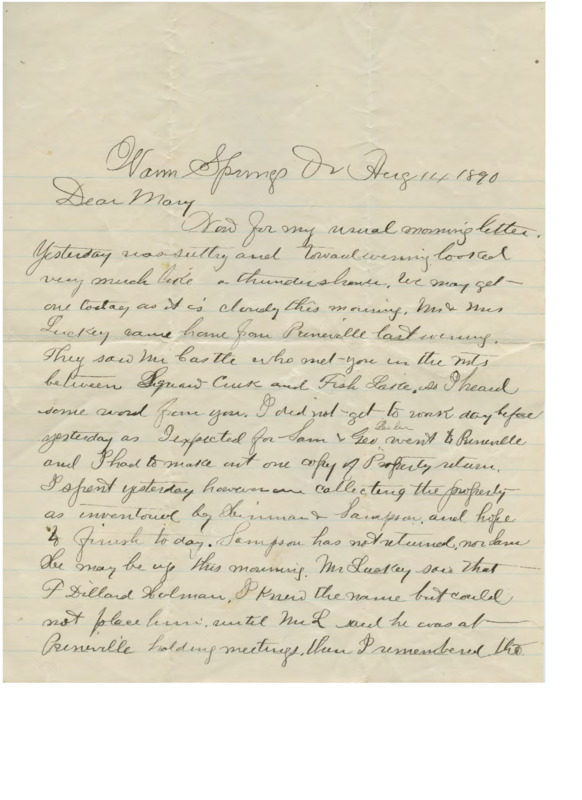 Warm Springs Or Aug 14 1890
Dear Mary
Now for my usual morning letter.
Yesterday was sultry and toward evening looked
very much like a thundershower. We may get
one today as it is cloudy this morning. Mr & Mrs
Luckey came home from Prineville last evening.
They saw Mr Castle who met you in the mts
between Squaw Creek and Fish Lake, so I heard
some word from you. I did not get to work day before
yesterday as I expected for Sam & Geo went to Prineville
and I had to make out one copy of Property return.
I spent yesterday however in collecting the property
as inventoried by & Sampson, and hope
to finish today. Sampson has not returned, nor Sam
he may be up this morning. Mr Luckey saw that
P Dillard Holman, I knew the name but could
not place him, until Mr L said he was at
Prineville holding meetings, then I remembered the